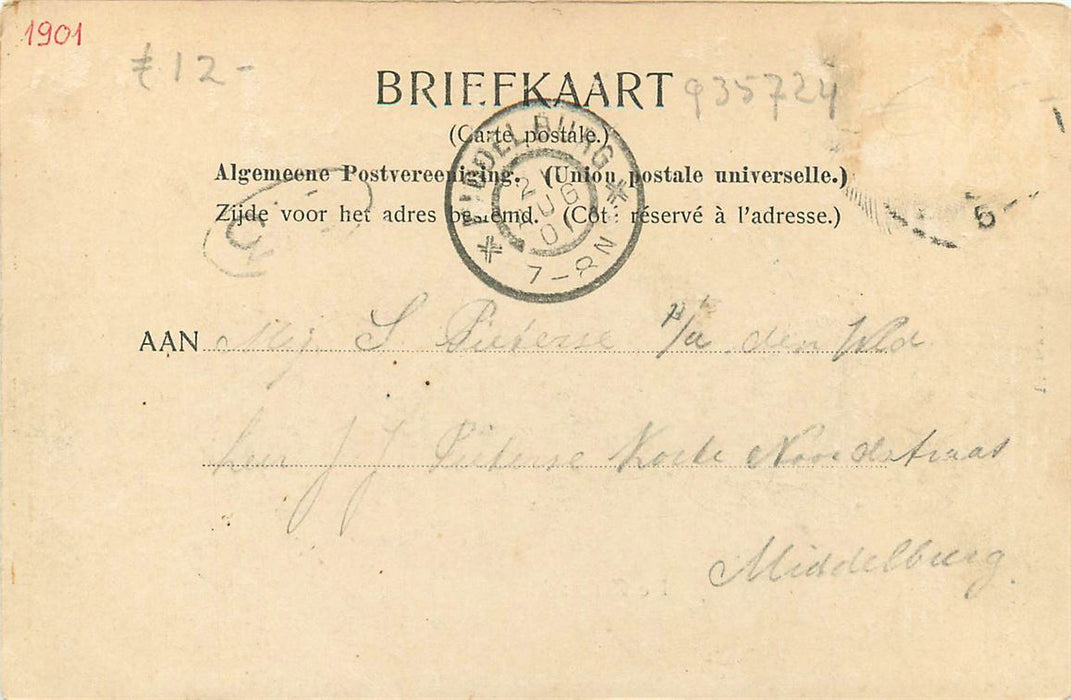 1901
12-
BRIEFKAART
935724
(Carte postale.)
Algemeene Postvereeniging. (Union postale universelle.)
Zijde voor het adres bestemd. (Côté réservé à l'adresse.)
MIDDELBURG
2 AUG 01
7-8N
6
AAN Mej. S Pieterse p/a den Wld
heer J J Pieterse Korte Noordstraat
Middelburg